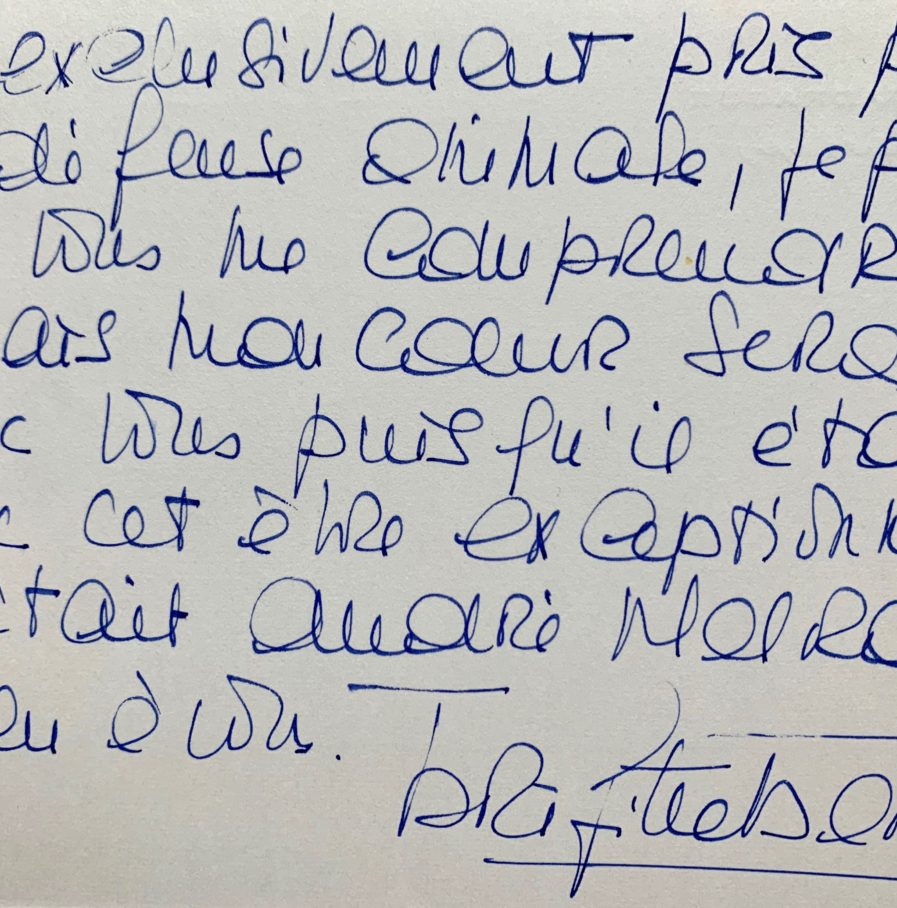 exclusivement pris p
défense animale, je p
vous me comprendr
ais mon cœur sera
c vous puisqu'il éta
c cet être exceptionn
était André Malra
en à vous.
Brigitte Ba